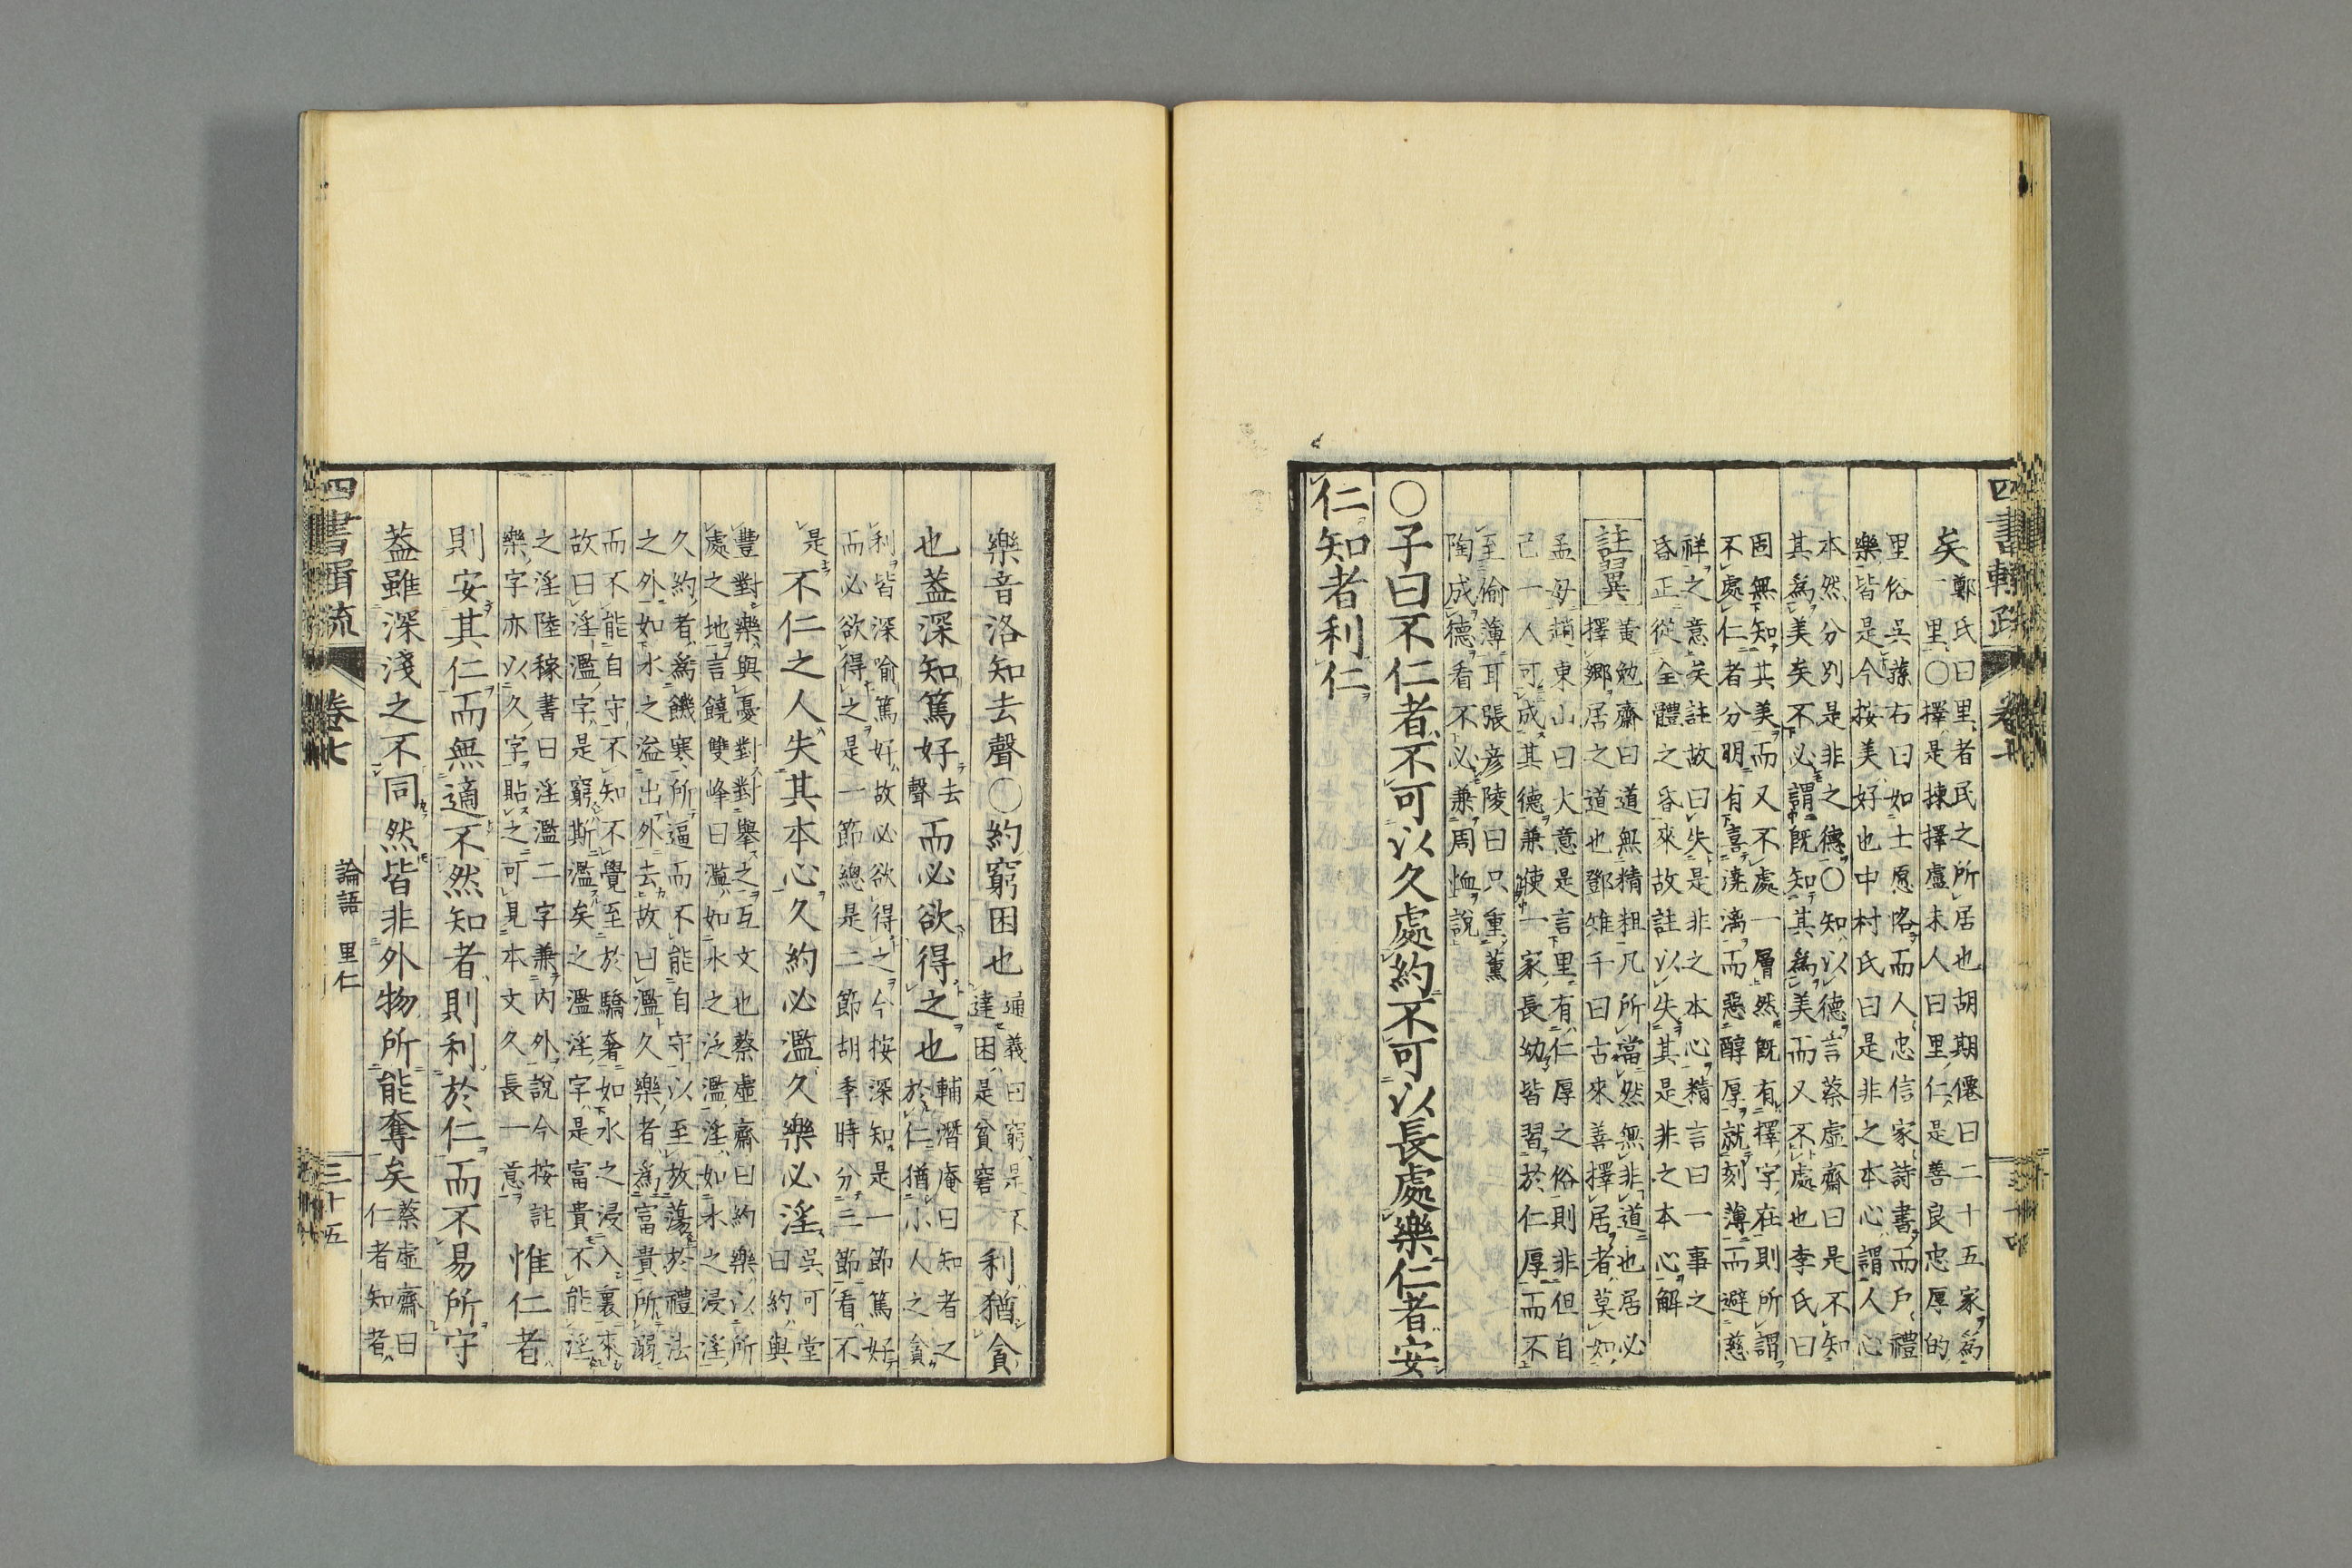 矣
鄭氏曰里者民之所居也胡期僊曰二十五家爲
一里○擇是揀擇盧未人曰里仁是善良忠厚的
里俗吳蓀右曰如士愿愘而人忠信家詩書而戶禮
樂皆是今按美好也中村氏曰是非之本心謂人心
本然分別是非之德○知以德言蔡虛齋曰是不知
其爲美矣不必謂既知其爲美而又不處也李氏曰
固無知其美而又不處一層然既有擇字在則所謂
不處仁者分明有喜澆漓而惡醇厚就刻薄而避慈
祥之意矣註故曰失是非之本心精言曰一事之
昏正從全體之昏來故註以失其是非之本心解
註翼
黃勉齋曰道無精粗凡所當然無非道也居必
擇鄉居之道也鄧雉千曰古來善擇居者莫如
孟母趙東山曰大意是言里有仁厚之俗則非但自
己一人可成其德兼使一家長幼皆習於仁厚而不
至偷薄耳張彥陵曰只重薰
陶成德看不必兼周恤說
○子曰不仁者不可以久處約不可以長處樂仁者安
仁知者利仁
樂音洛知去聲○約窮困也
通義曰窮是不
達困是貧窘
利猶貪
也蓋深知篤好
去
聲
而必欲得之也
輔潛庵曰知者之
於仁猶小人之貪
利皆深喻篤好故必欲得之今按深知是一節篤好
而必欲得之是一節總是二節胡季時分三節看不
是
不仁之人失其本心久約必濫久樂必淫
吳可堂
曰約與
豐對樂與憂對對舉之互文也蔡虛齋曰約樂以所
處之地言饒雙峰曰濫如水之泛濫淫如水之浸淫
久約者爲饑寒所逼而不能自守以至放蕩於禮法
之外如水之溢出外去故曰濫久樂者爲富貴所溺
而不能自守不知不覺至於驕奢如水之浸入裏來
故曰淫濫字是窮斯濫矣之濫淫字是富貴不能淫
之淫陸稼書曰淫濫二字兼內外說今按註
樂字亦以久字貼之可見本文久長一意
惟仁者
則安其仁而無適不然知者則利於仁而不易所守
蓋雖深淺之不同然皆非外物所能奪矣
蔡虛齋曰
仁者知者
四書
卷七
論語 里仁
三十五